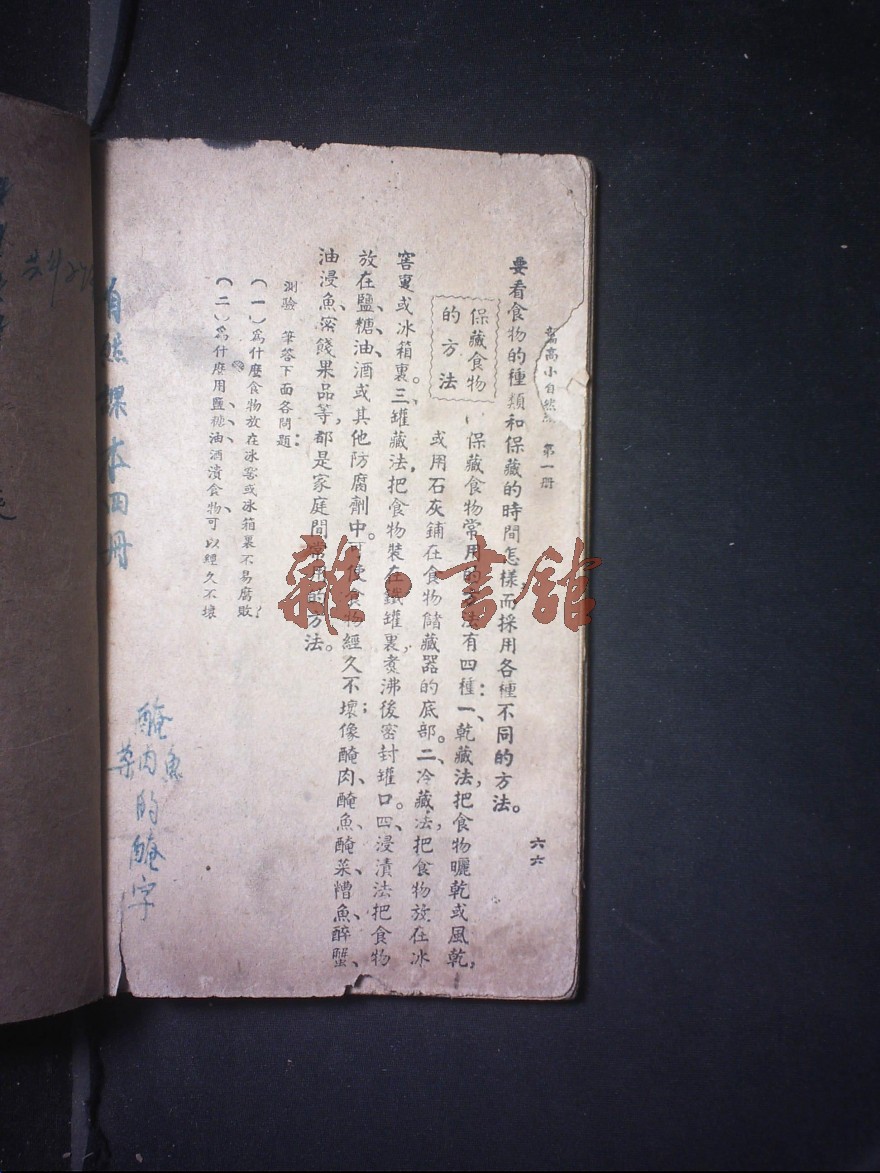 高小自然 第一册
六六
要看食物的種類和保藏的時間怎樣，而採用各種不同的方法。
保藏食物
的方法
保藏食物常用的方法有四種：一、乾藏法，把食物曬乾或風乾，
或用石灰鋪在食物儲藏器的底部。二、冷藏法，把食物放在冰
窖裏或冰箱裏。三、罐藏法，把食物裝在鐵罐裏，煮沸後密封罐口。四、浸漬法把食物
放在鹽、糖、油、酒或其他防腐劑中。可使食物經久不壞；像醃肉、醃魚、醃菜、糟魚、醉蟹、
油浸魚、蜜餞果品等，都是家庭間常用的方法。
測驗 筆答下面各問題：
（一）爲什麼食物放在冰窖或冰箱裏不易腐敗？
（二）爲什麼用鹽、糖、油、酒漬食物，可以經久不壞
自然課本四册
醃魚
肉
菜
的醃字
雜·書館